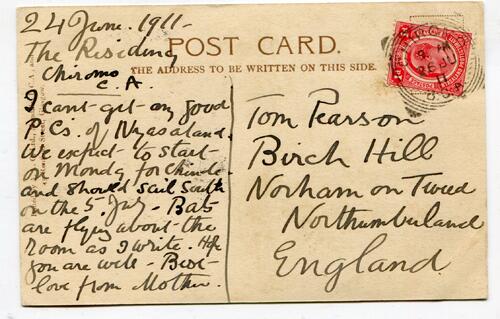 24 June. 1911-
The Residency
Chiromo
C. A.
I cant get any good
P.Cs. of Nyasaland.
We expect to start
on Monday for Chinde
and should sail South
on the 5 July - Bats
are flying about the
room as I write. Hope
you are well - Best
love from Mother.
POST CARD.
THE ADDRESS TO BE WRITTEN ON THIS SIDE.
Tom Pearson
Birch Hill
Norham on Tweed
Northumberland
England